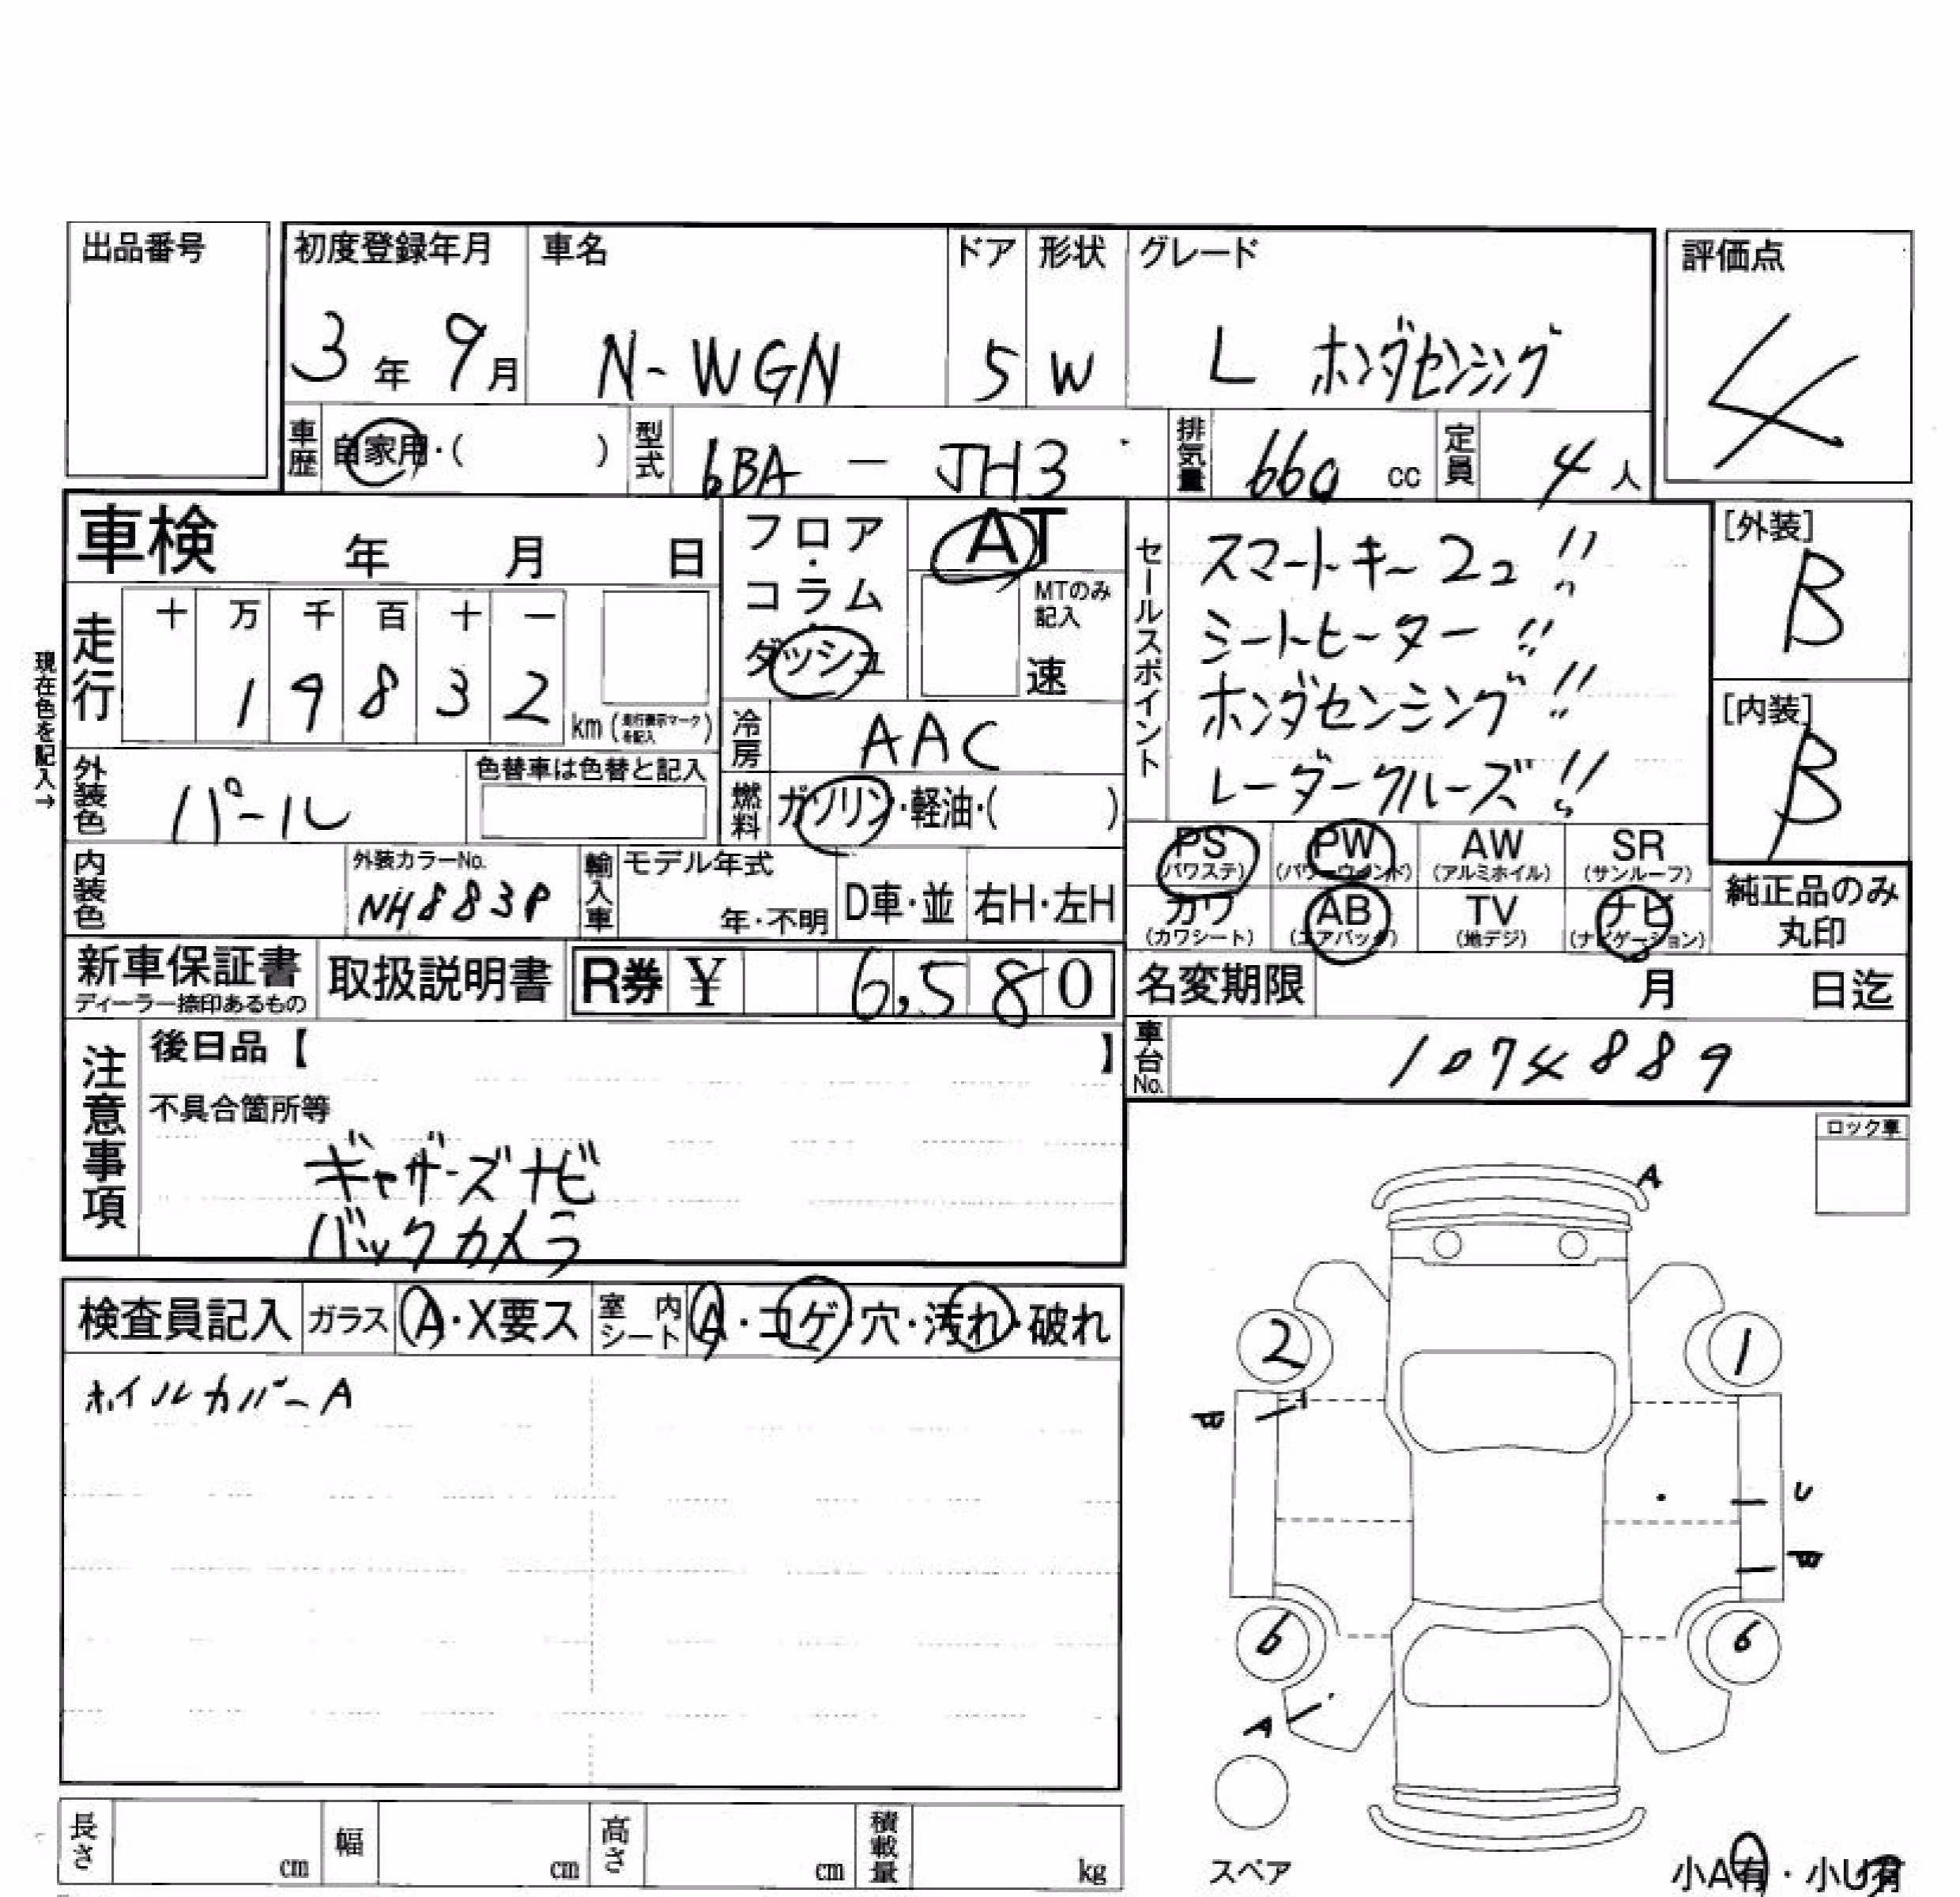 出品番号
初度登録年月 車名 ドア 形状 グレード 評価点
3年 9月 N-WGN 5 W L ホンダセンシング 4
車歴 自家用・( ) 型式 6BA - JH3 排気量 660 cc 定員 4人
車検 年 月 日
フロア・コラム・ダッシュ AT
MTのみ記入 速
セールスポイント
スマートキー2コ!!
シートヒーター!!
ホンダセンシング!!
レーダークルーズ!!
[外装] B
[内装] B
現在色を記入→
走行 十 万 千 百 十 一
1 9 8 3 2 km (走行表示マークを記入)
冷房 AAC
外装色 パール 色替車は色替と記入
燃料 ガソリン・軽油・( )
PS (パワステ) PW (パワーウィンド) AW (アルミホイル) SR (サンルーフ)
カワ (カワシート) AB (エアバッグ) TV (地デジ) ナビ (ナビゲーション)
純正品のみ丸印
内装色 外装カラーNo. NH883P 輸入車 モデル年式 年・不明 D車・並 右H・左H
新車保証書 ディーラー捺印あるもの 取扱説明書 R券 ¥ 6,580
名変期限 月 日迄
車台No. 1074889
注意事項 後日品【 】
不具合箇所等
ギャザーズナビ
バックカメラ
ロック車
検査員記入 ガラス A・X要ス 室内シート A・コゲ・穴・汚れ・破れ
ホイルカバーA
A
2 1
U
6 6
A
スペア
長さ cm 幅 cm 高さ cm 積載量 kg
小A有・小U有